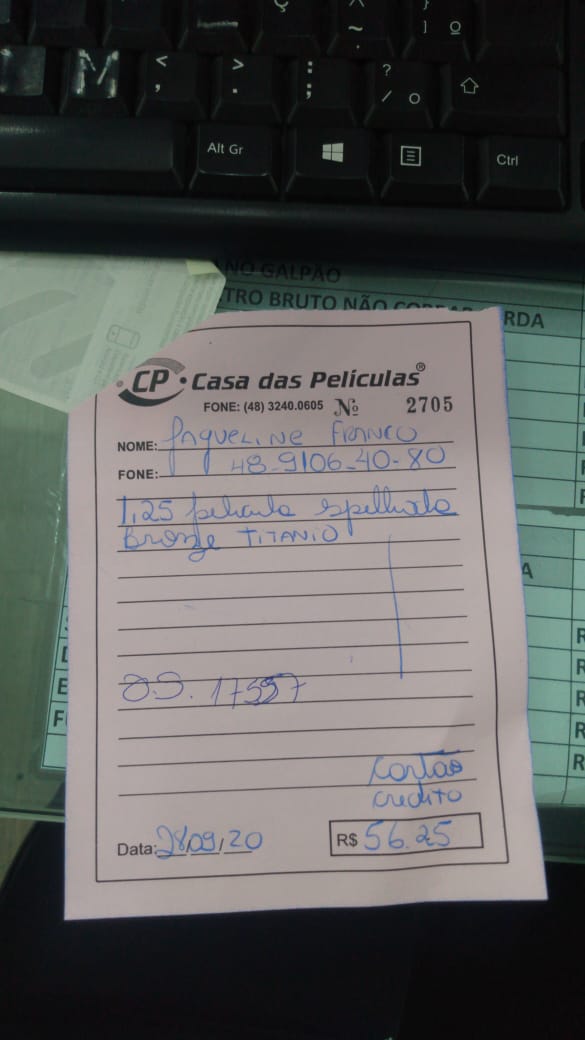 Ç ^ ~ . } ] º
M < , > . : ; ? / O
Alt Gr Ctrl
NO GALPÃO
TRO BRUTO NÃO RDA
CP Casa das Películas®
FONE: (48) 3240.0605 Nº 2705
NOME: Jaqueline Franco
FONE: 48-9106-40-80
1,25 pelicula
Bronze TITANIO
O.S.
Cartão
credito
Data: 28/09/20 R$ 56.25
A
R
R
R
R
R